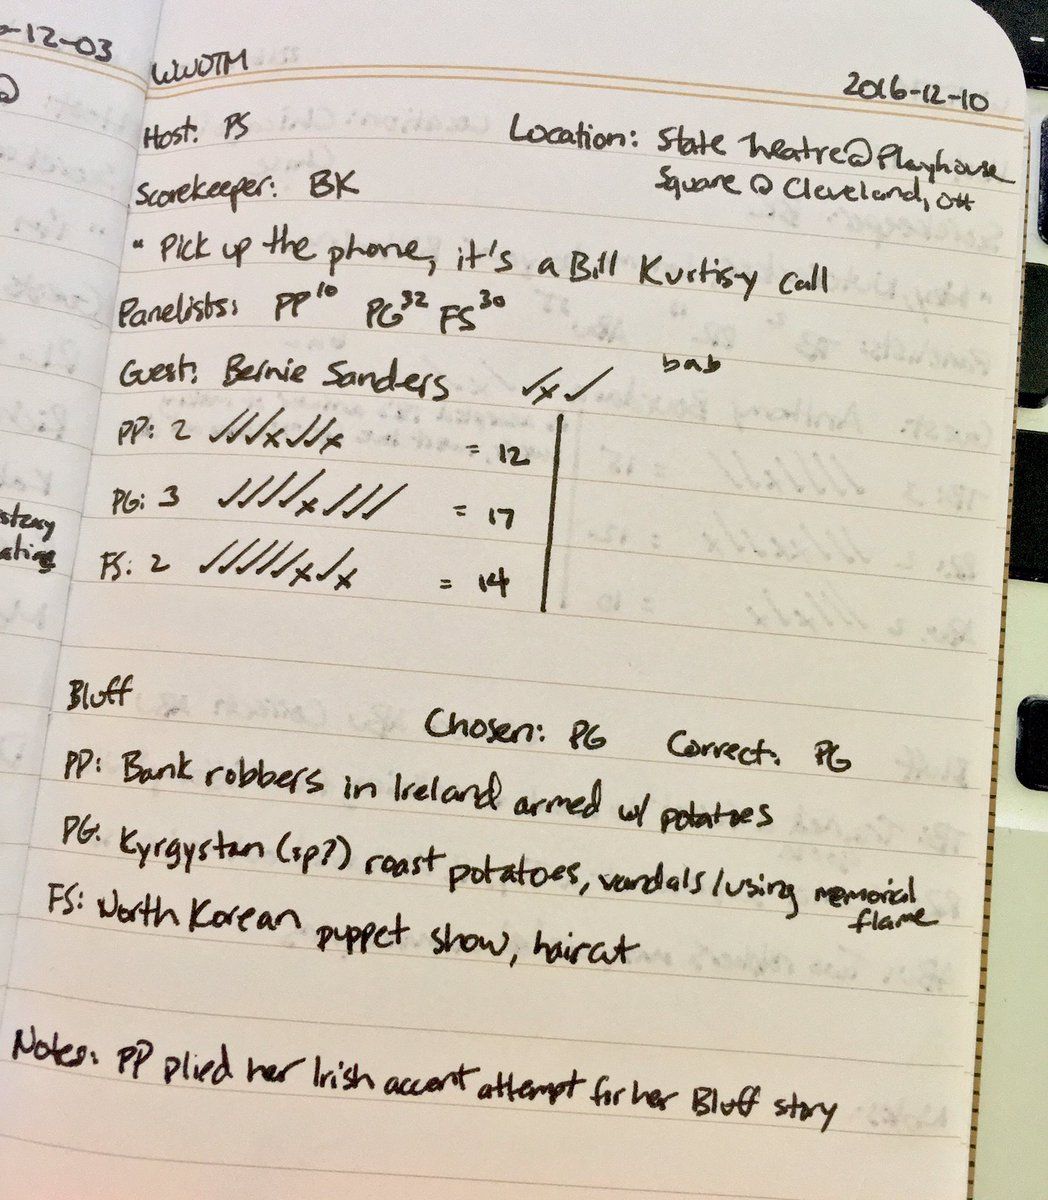 -12-03
WWDTM
2016-12-10
Host: PS
Location: State Theatre @ Playhouse
Square @ Cleveland, OH
Scorekeeper: BK
" Pick up the phone, it's a Bill Kurtis-y call
Panelists: PP10 PG32 FS30
Guest: Bernie Sanders ✓x✓ bnb
PP: 2 ✓✓✓x✓✓x = 12
PG: 3 ✓✓✓✓x✓✓✓ = 17
FS: 2 ✓✓✓✓✓x✓x = 14
Bluff
Chosen: PG Correct: PG
PP: Bank robbers in Ireland armed w/ potatoes
PG: Kyrgystan (sp?) roast potatoes, vandals/using memorial
flame
FS: North Korean puppet show, haircut
Notes: PP plied her Irish accent attempt for her Bluff story